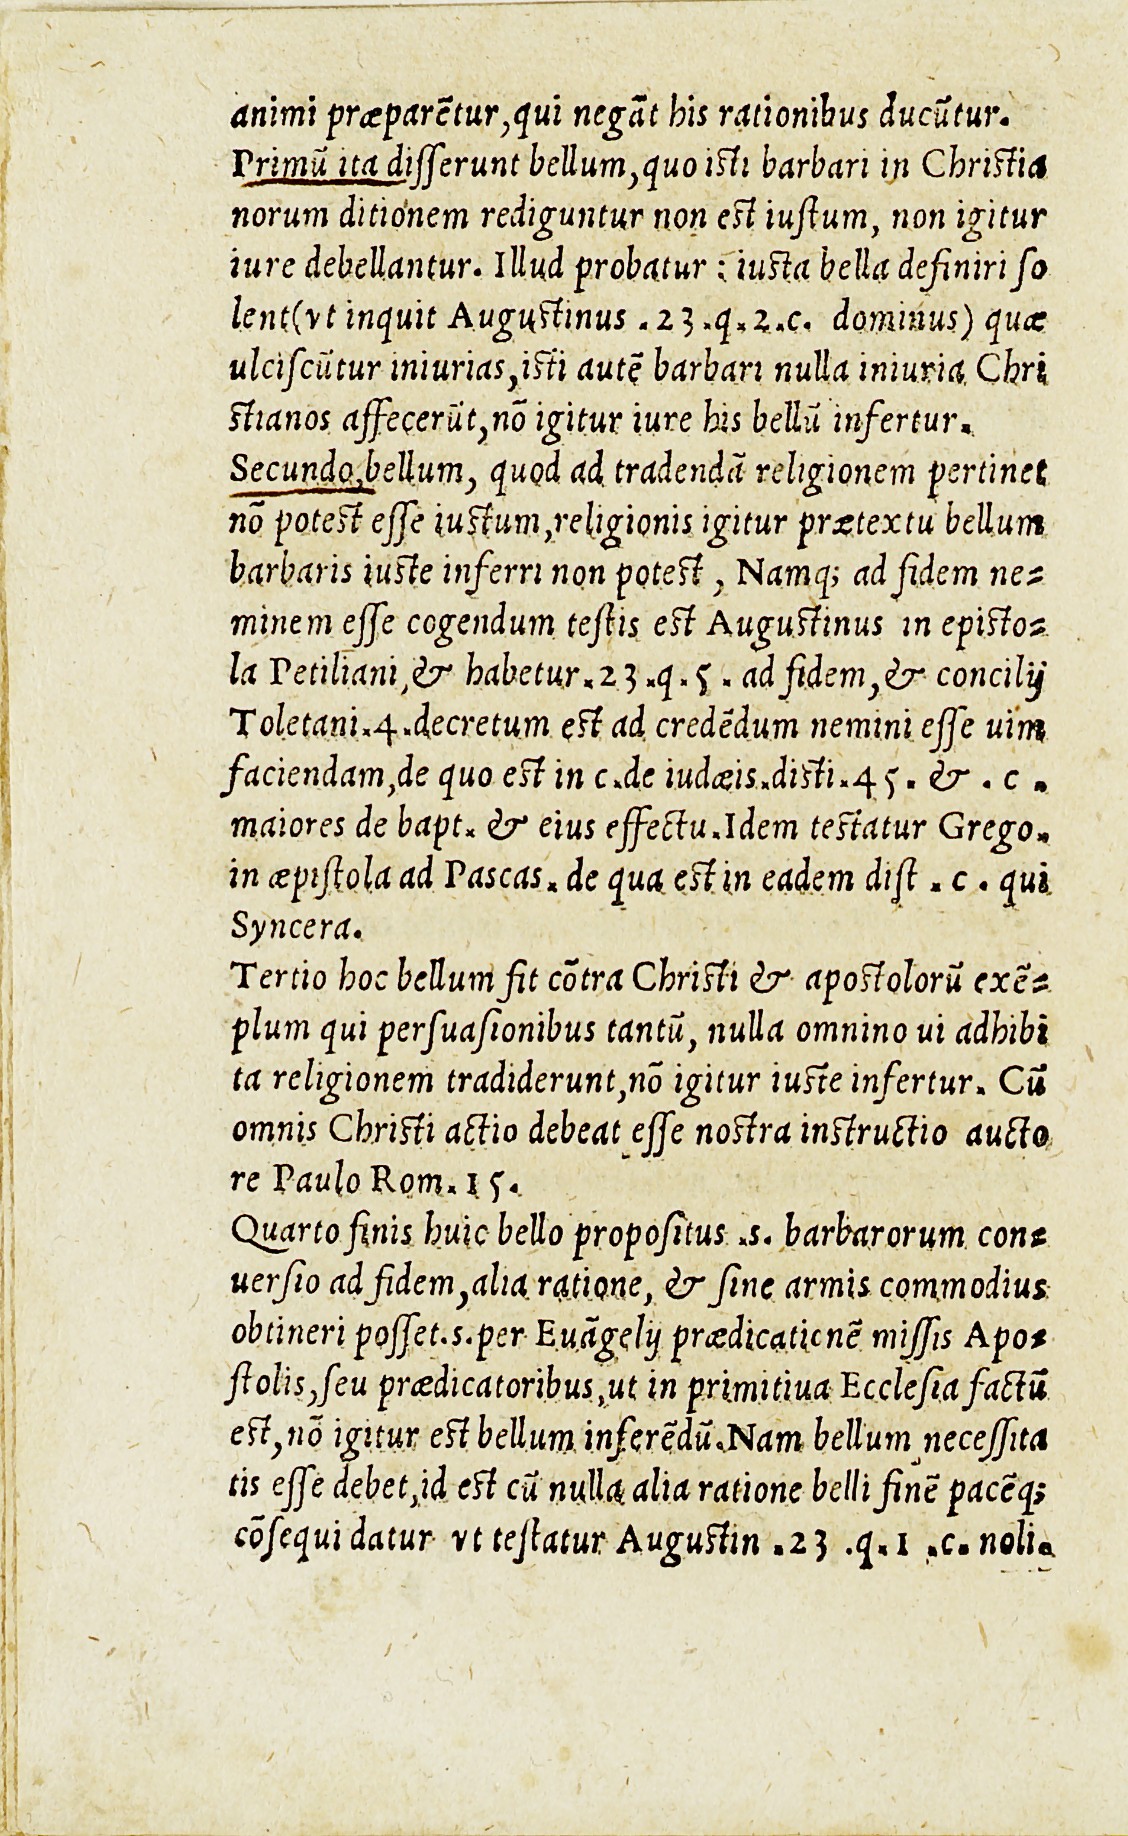 animi præparẽtur,qui negãt his rationibus ducũtur.
Primũ ita disserunt bellum,quo isti barbari in Christia
norum ditionem rediguntur non est iustum, non igitur
iure debellantur. Illud probatur : iusta bella definiri so
lent(vt inquit Augustinus .23.q.2.c. dominus) quæ
ulciscũtur iniurias,isti autẽ barbari nulla iniuria Chri
stianos affecerũt,nõ igitur iure his bellũ infertur.
Secundo,bellum, quod ad tradendã religionem pertinet
nõ potest esse iustum,religionis igitur prætextu bellum
barbaris iuste inferri non potest , Namq; ad fidem ne=
minem esse cogendum testis est Augustinus in episto=
la Petiliani,& habetur.23.q.5. ad fidem,& concilij
Toletani.4.decretum est ad credẽdum nemini esse uim
faciendam,de quo est in c.de iudæis.disti.45. & . c .
maiores de bapt. & eius effectu.Idem testatur Grego.
in æpistola ad Pascas. de qua est in eadem dist . c . qui
Syncera.
Tertio hoc bellum fit cõtra Christi & apostolorũ exẽ=
plum qui persuasionibus tantũ, nulla omnino ui adhibi
ta religionem tradiderunt,nõ igitur iuste infertur. Cũ
omnis Christi actio debeat esse nostra instructio aucto
re Paulo Rom.15.
Quarto finis huic bello propositus .s. barbarorum con=
uersio ad fidem,alia ratione, & sine armis commodius
obtineri posset.s.per Euãgelij prædicationẽ missis Apo=
stolis,seu prædicatoribus,ut in primitiua Ecclesia factũ
est,nõ igitur est bellum inferẽdũ.Nam bellum necessita
tis esse debet,id est cũ nulla alia ratione belli finẽ pacẽq;
cõsequi datur vt testatur Augustin .23 .q.1 .c. noli.